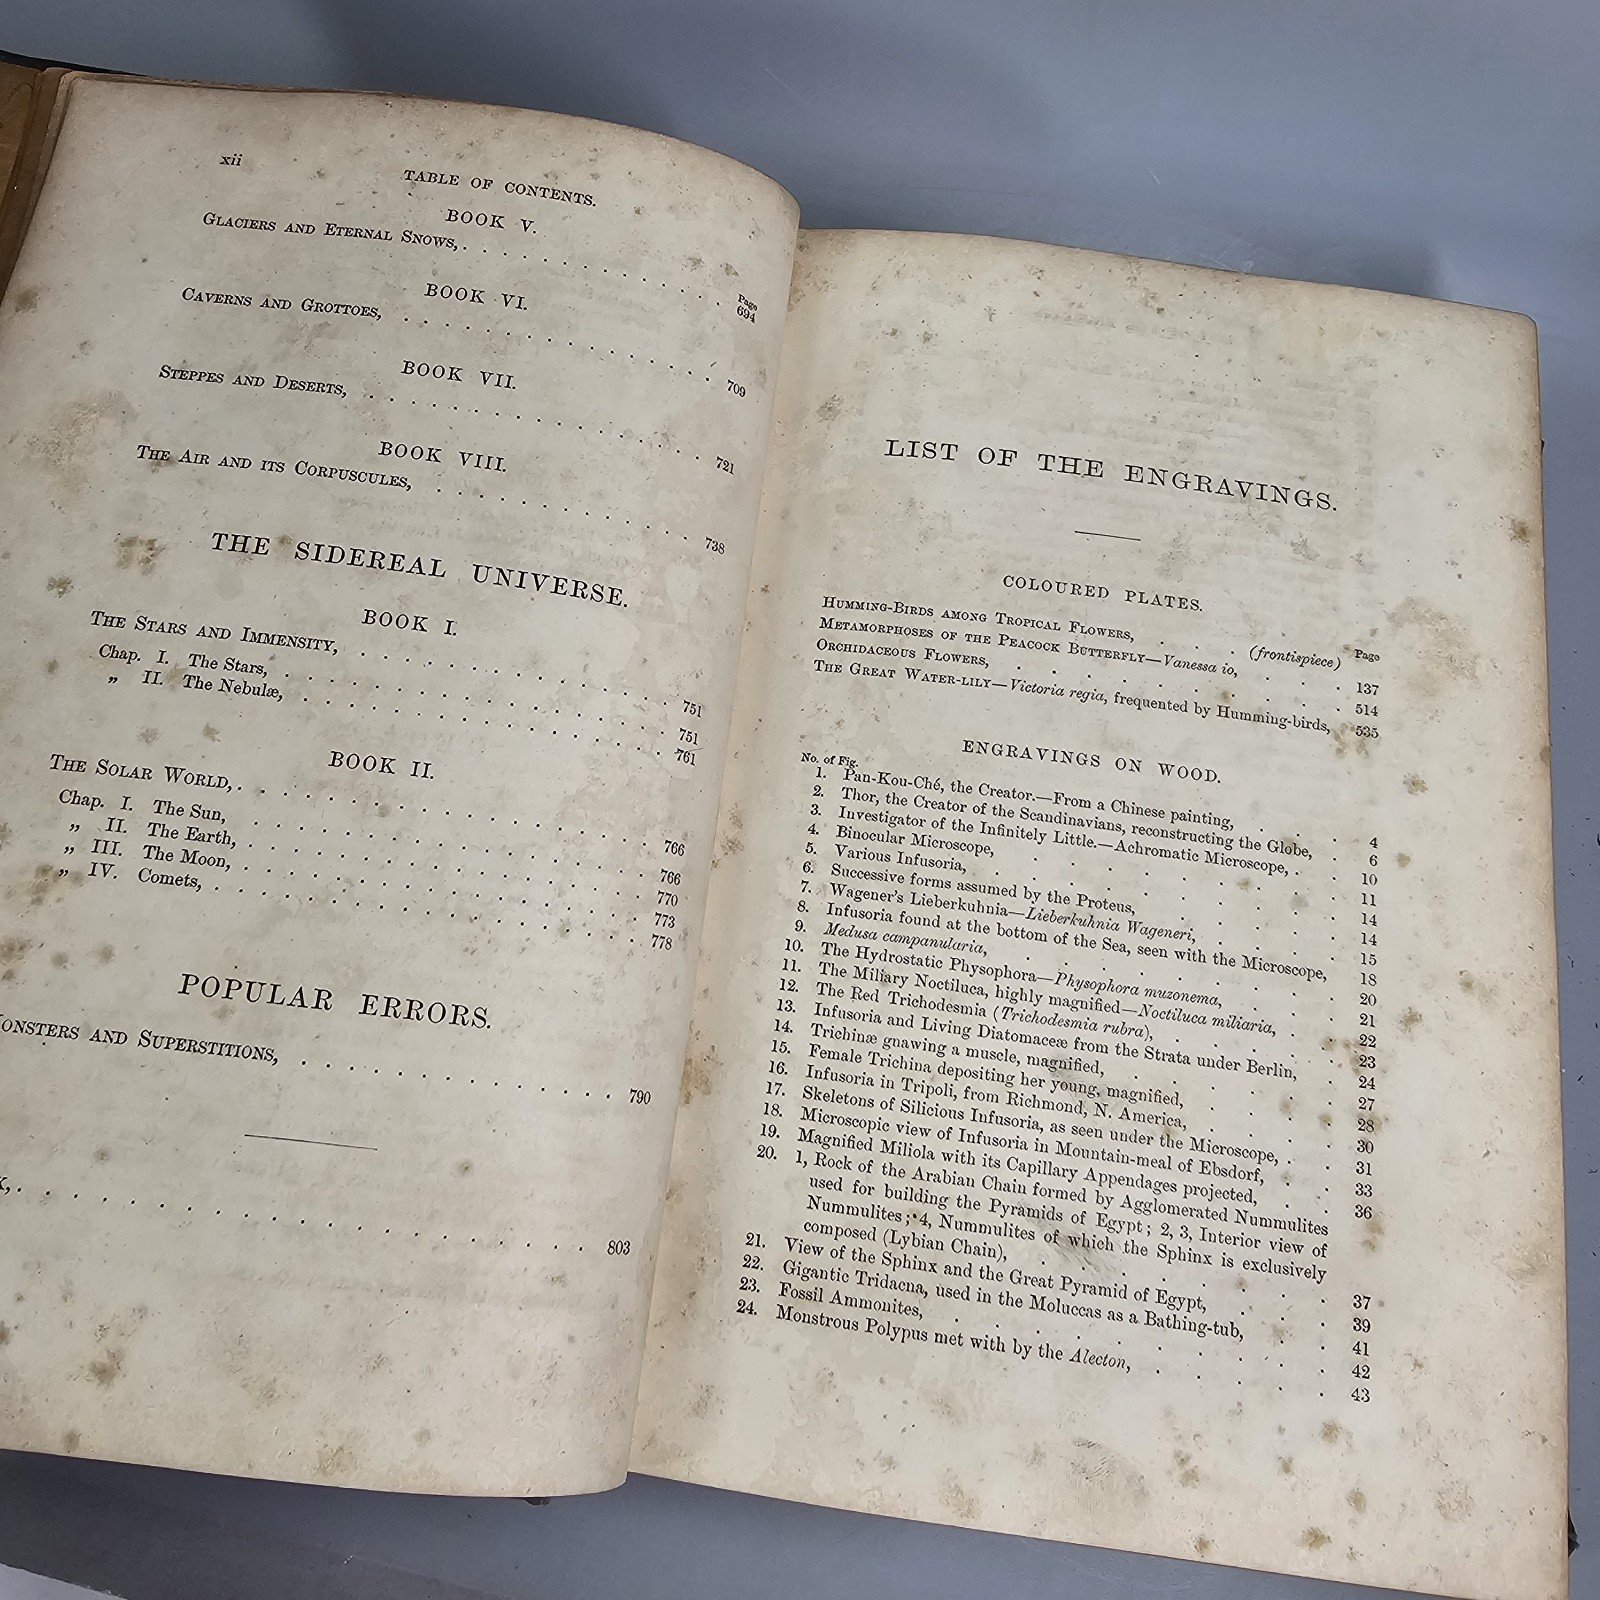 xii
TABLE OF CONTENTS.
BOOK V.
Page
Glaciers and Eternal Snows, . . . . . . . . . . . . . . 694
BOOK VI.
Caverns and Grottoes, . . . . . . . . . . . . . . . 709
BOOK VII.
Steppes and Deserts, . . . . . . . . . . . . . . . . 721
BOOK VIII.
The Air and its Corpuscules, . . . . . . . . . . . . . 738
THE SIDEREAL UNIVERSE.
BOOK I.
The Stars and Immensity, . . . . . . . . . . . . . . . 751
Chap. I. The Stars, . . . . . . . . . . . . . . . . . 751
„ II. The Nebulæ, . . . . . . . . . . . . . . . . . 761
BOOK II.
The Solar World, . . . . . . . . . . . . . . . . . . 766
Chap. I. The Sun, . . . . . . . . . . . . . . . . . . 766
„ II. The Earth, . . . . . . . . . . . . . . . . . . 770
„ III. The Moon, . . . . . . . . . . . . . . . . . . 773
„ IV. Comets, . . . . . . . . . . . . . . . . . . . 778
POPULAR ERRORS.
onsters and Superstitions, . . . . . . . . . . . . . . 790
x, . . . . . . . . . . . . . . . . . . . . . . . . 803
LIST OF THE ENGRAVINGS.
COLOURED PLATES.
Page
Humming-Birds among Tropical Flowers, . . . . (frontispiece)
Metamorphoses of the Peacock Butterfly—Vanessa io, . . . . 137
Orchidaceous Flowers, . . . . . . . . . . . 514
The Great Water-lily—Victoria regia, frequented by Humming-birds, 535
ENGRAVINGS ON WOOD.
No. of Fig.
1. Pan-Kou-Ché, the Creator.—From a Chinese painting, . . . 4
2. Thor, the Creator of the Scandinavians, reconstructing the Globe, . 6
3. Investigator of the Infinitely Little.—Achromatic Microscope, . . 10
4. Binocular Microscope, . . . . . . . . . 11
5. Various Infusoria, . . . . . . . . . . 14
6. Successive forms assumed by the Proteus, . . . . . 14
7. Wagener's Lieberkuhnia—Lieberkuhnia Wageneri, . . . . 15
8. Infusoria found at the bottom of the Sea, seen with the Microscope, 18
9. Medusa campanularia, . . . . . . . . . 20
10. The Hydrostatic Physophora—Physophora muzonema, . . . 21
11. The Miliary Noctiluca, highly magnified—Noctiluca miliaria, . . 22
12. The Red Trichodesmia (Trichodesmia rubra), . . . . . 23
13. Infusoria and Living Diatomaceæ from the Strata under Berlin, . 24
14. Trichinæ gnawing a muscle, magnified, . . . . . . 27
15. Female Trichina depositing her young, magnified, . . . . 28
16. Infusoria in Tripoli, from Richmond, N. America, . . . . 30
17. Skeletons of Silicious Infusoria, as seen under the Microscope, . . 31
18. Microscopic view of Infusoria in Mountain-meal of Ebsdorf, . . 33
19. Magnified Miliola with its Capillary Appendages projected, . . 36
20. 1, Rock of the Arabian Chain formed by Agglomerated Nummulites
used for building the Pyramids of Egypt; 2, 3, Interior view of
Nummulites; 4, Nummulites of which the Sphinx is exclusively
composed (Lybian Chain), . . . . . . . . 37
21. View of the Sphinx and the Great Pyramid of Egypt, . . . . 39
22. Gigantic Tridacna, used in the Moluccas as a Bathing-tub, . . 41
23. Fossil Ammonites, . . . . . . . . . . 42
24. Monstrous Polypus met with by the Alecton, . . . . . 43